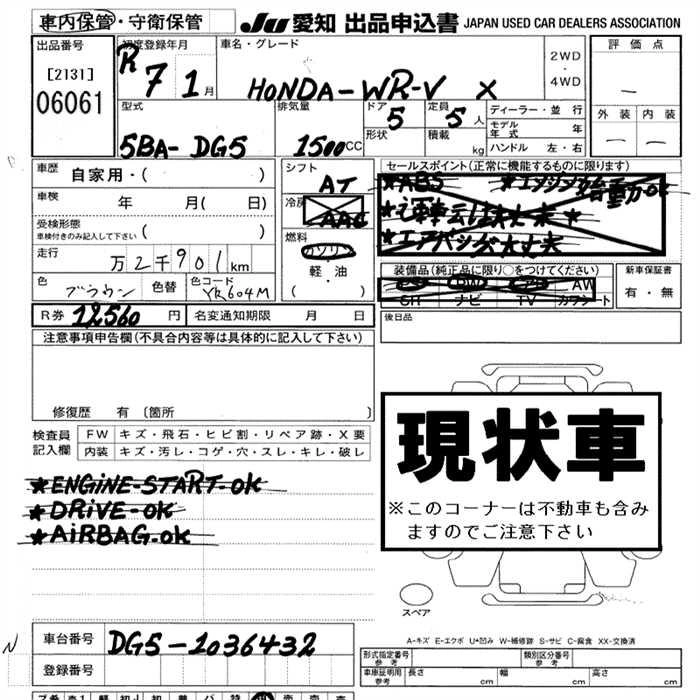 車内保管・守衛保管 JU 愛知 出品申込書 JAPAN USED CAR DEALERS ASSOCIATION
出品番号 初度登録年月 車名・グレード 2WD・4WD 評価点
[2131] R 7 1月 HONDA-WR-V X
06061 外装 内装
型式 排気量 ドア 定員 ディーラー・並行
5BA-DG5 1500cc 5 5人 モデル年式 年
形状 積載 kg ハンドル 左・右
車歴 自家用・( ) シフト セールスポイント(正常に機能するものに限ります)
AT ★ABS ★エンジン始動OK
車検 年 月( 日) 冷房 AAC
受検形態 車検付きのみ記入して下さい ( )
燃料 ガソリン ★エアバッグ大丈夫
走行 万2千901km 軽・油 装備品(純正品に限り○をつけてください) 新車保証書
色 ブラウン 色替 色コード YR604M ( ) PS PW AB AW 有・無
SR ナビ TV カワシート
R券 12560円 名変通知期限 月 日 後日品
注意事項申告欄(不具合内容等は具体的に記入して下さい)
修復歴 有 〔箇所 〕
現状車
※このコーナーは不動車も含み
ますのでご注意下さい
検査員記入欄 FW キズ・飛石・ヒビ割・リペア跡・X要
内装 キズ・汚レ・コゲ・穴・スレ・キレ・破レ
★ENGINE-START-OK
★DRIVE-OK
★AIRBAG-OK
スペア
A-キズ E-エクボ U-凹み W-補修跡 S-サビ C-腐食 XX-交換済
N 車台番号 DG5-1036432
登録番号
形式指定番号 参考 類別区分番号 参考
車庫証明用 参考 長さ cm 幅 cm 高さ cm